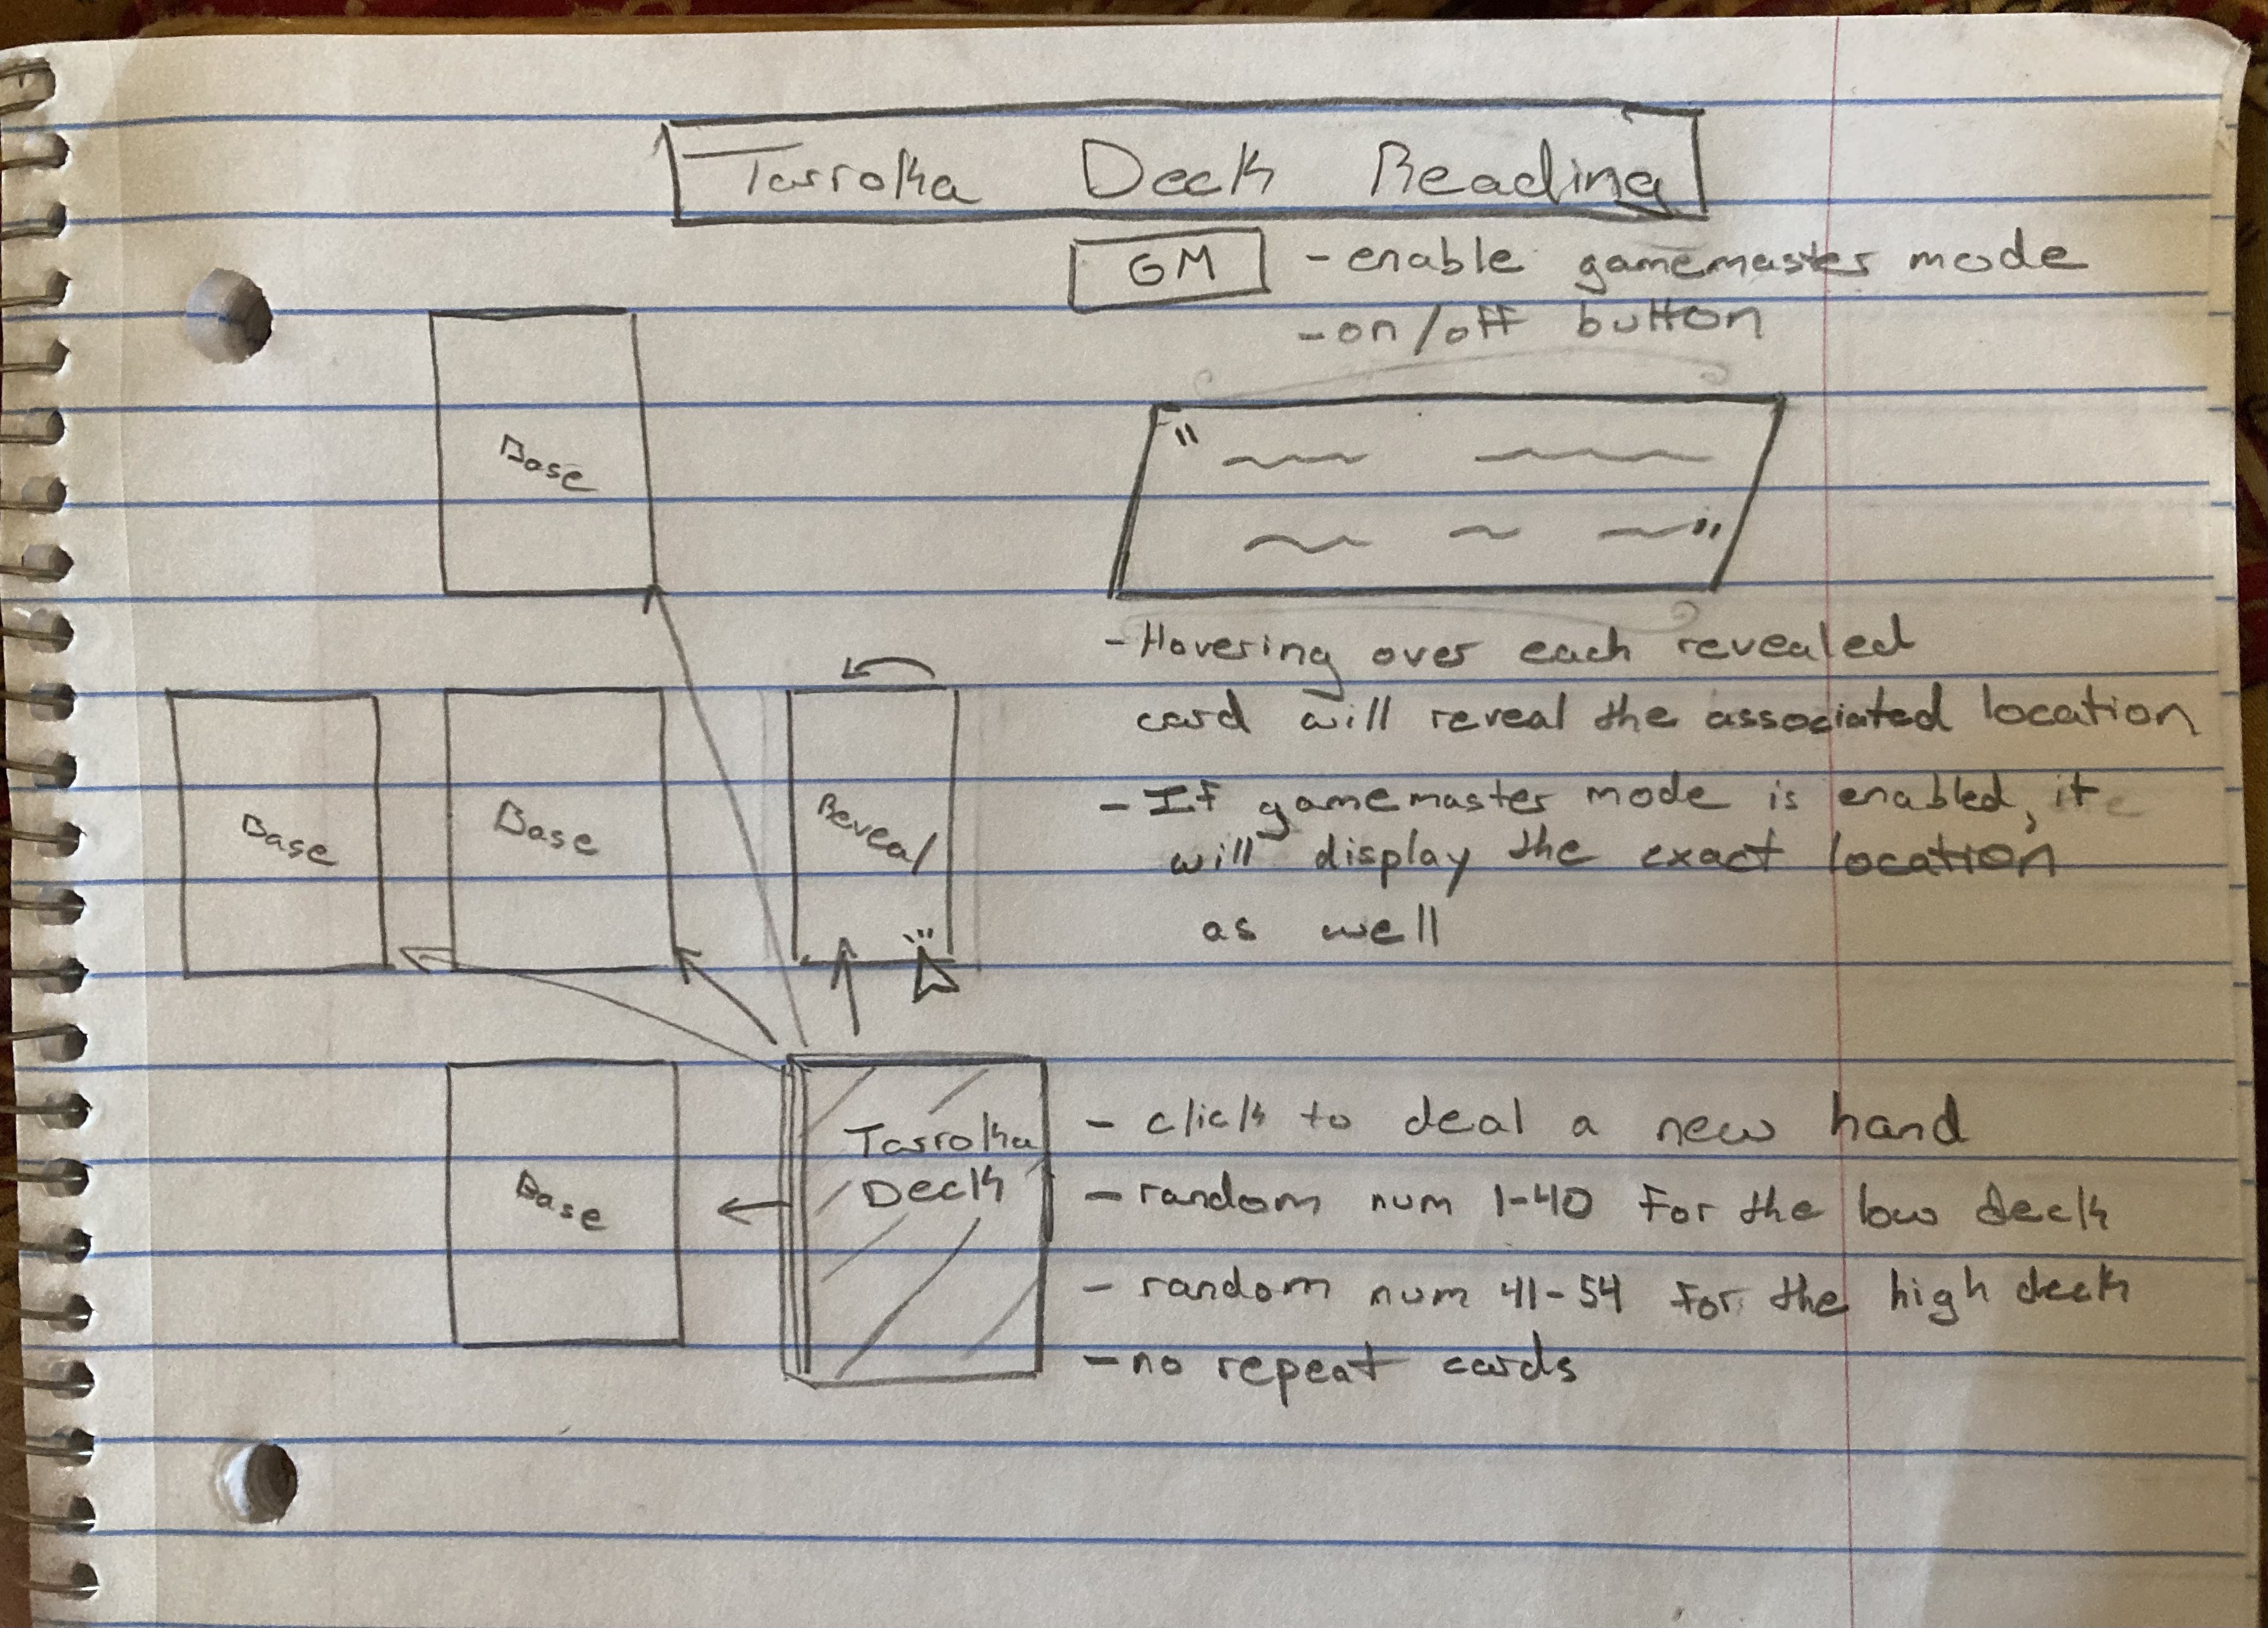 Tarroka Deck Reading
GM - enable gamemaster mode
- on/off button
Base
" "
- Hovering over each revealed
card will reveal the associated location
Base Base Reveal
- If gamemaster mode is enabled, it
will display the exact location
as well
Tarroka
Deck
Base
- click to deal a new hand
- random num 1-40 for the low deck
- random num 41-54 for the high deck
- no repeat cards